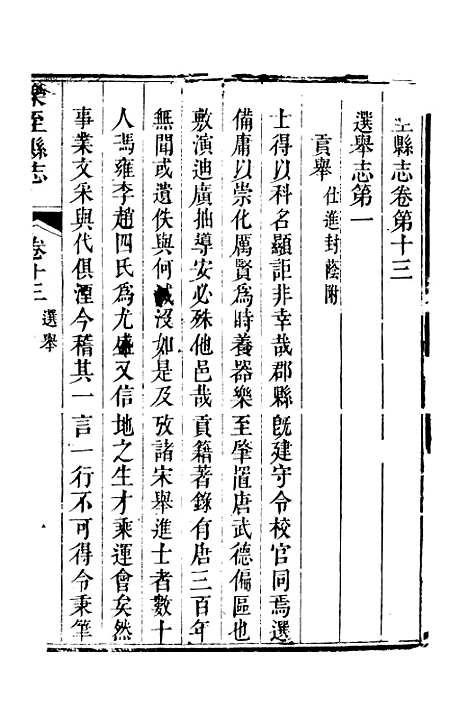 至縣志卷第十三
選舉志第一
貢舉 仕進封蔭附
士得以科名顯詎非幸哉郡縣既建守令校官同焉選
備庸以崇化厲賢爲時養器樂至肇置唐武德偏區也
敷演迪廣拙導安必殊他邑哉貢籍著錄有唐三百年
無聞或遺佚與何減沒如是及攷諸宋舉進士者數十
人馮雍李趙四氏爲尤盛又信地之生才乘運會矣然
事業文采與代俱湮今稽其一言一行不可得令秉筆
樂至縣志 卷十三 選舉